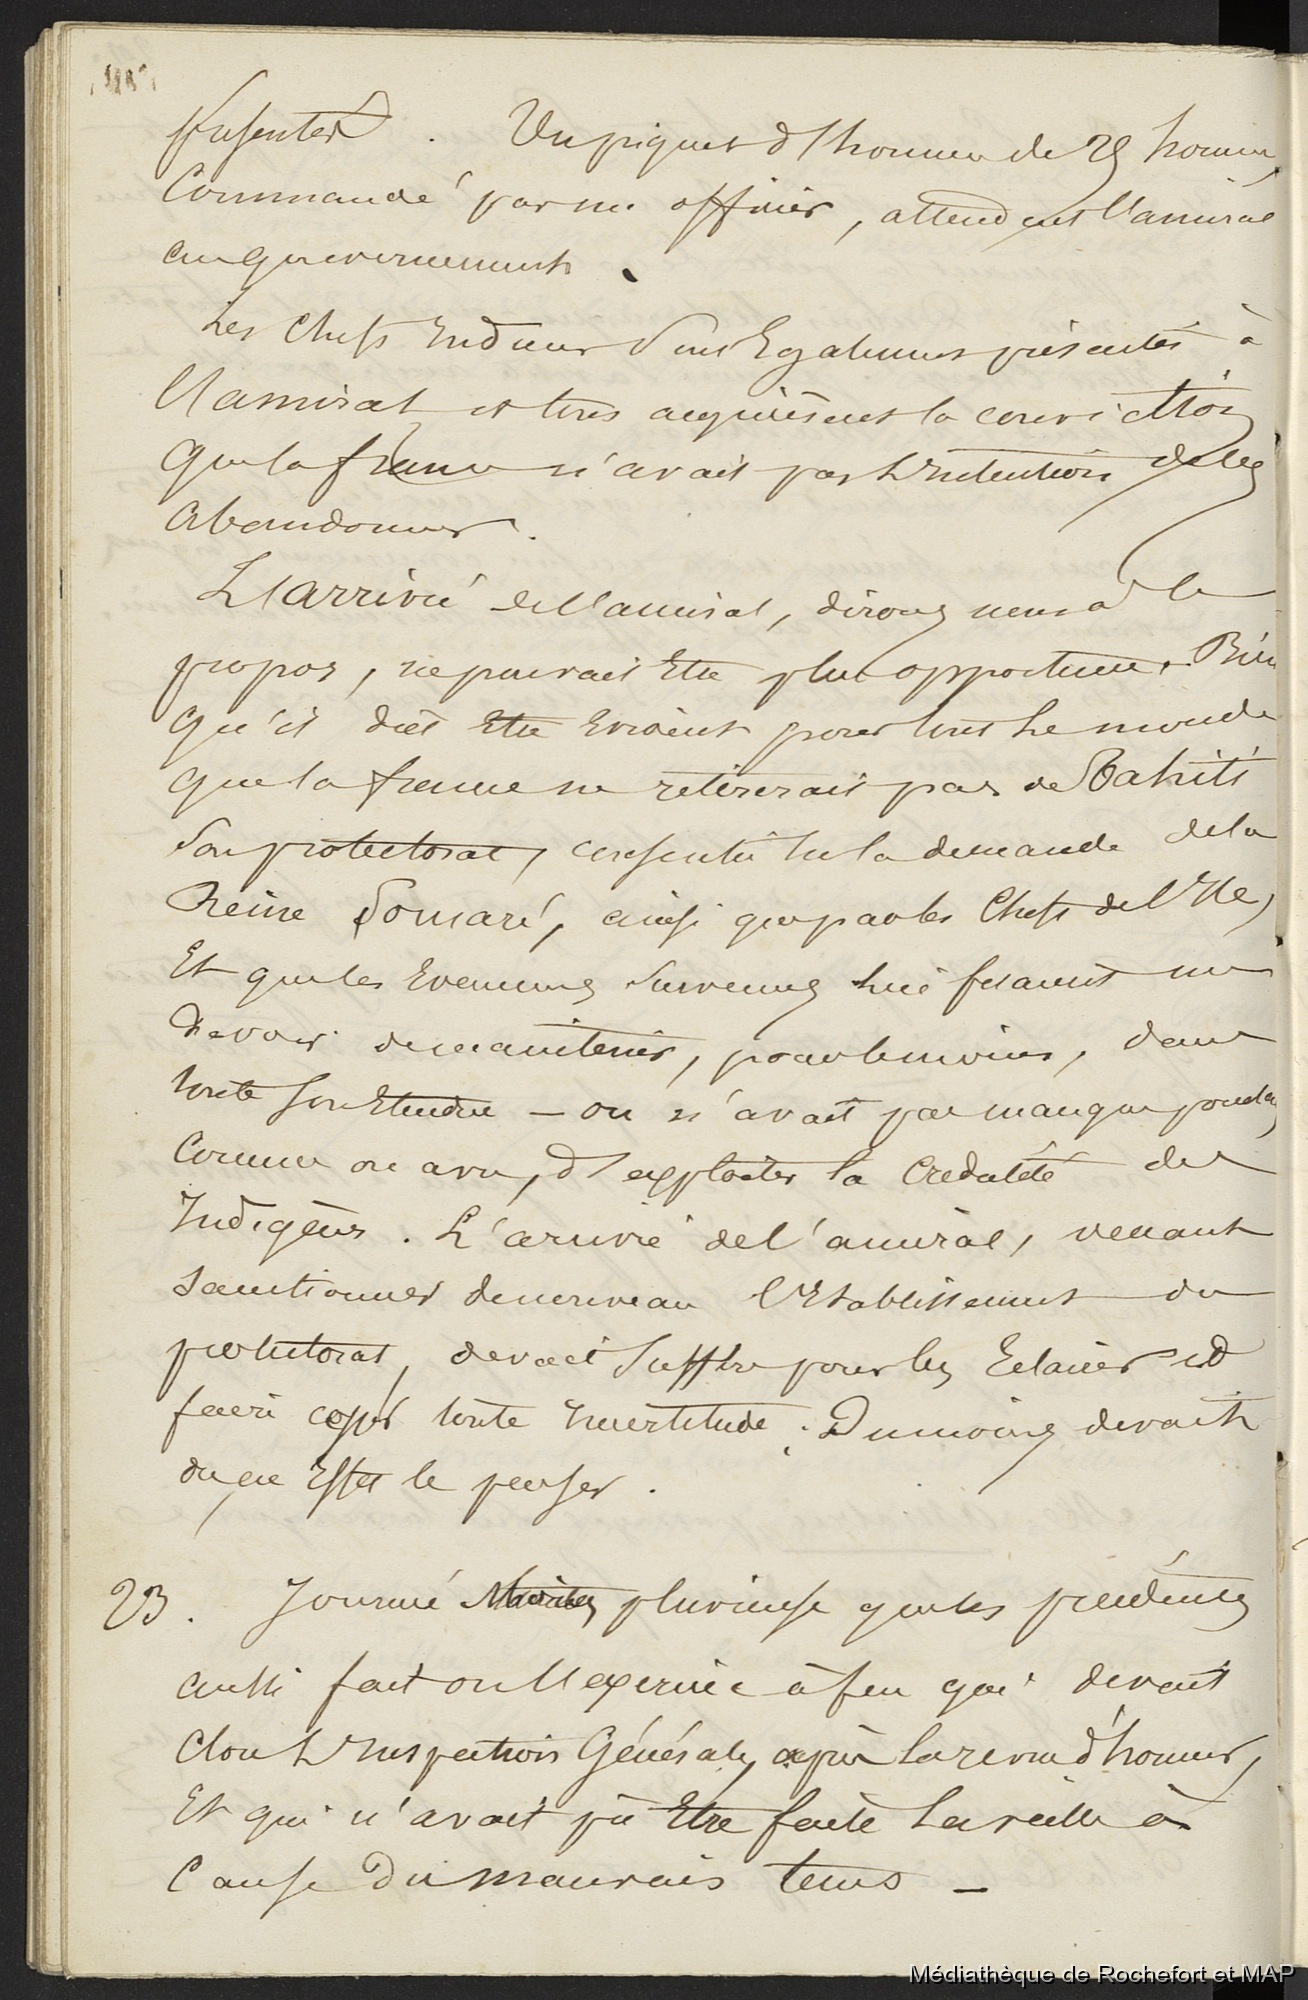 présentés. Un piquet d'honneur de 25 hommes
Commandé par un officier, attendent l'amiral
au gouvernement.
Les Chefs Indiens sont Egalement présentés à
l'amiral et tous acquièrent la conviction
que la france n'avait pas L'intention de les
abandonner.
L'arrivée de l'amiral, dirons nous à le
propos, ne pouvait Etre plus opportune. Bien
qu'il dût Etre Evident pour tout Le monde
que la france ne retirerait pas de Tahiti
Son protectorat, consenti sur la demande de la
Reine Pomaré, ainsi que par les Chefs de l'Ile,
Et que les Evenemens Survenus lui fesaient un
devoir de maintenir, pour le moins, dans
toute son Etendue — on n'avait pas manqué pendant,
Comme on a vu, d'exploiter la Crédulité des
Indigènes. L'arrivée de l'amiral, venant
Sanctionner de nouveau l'Etablissement du
protectorat, devait Suffire pour les Eclairer et
faire cesser toute Incertitude; Du moins devait
on en Effet le penser.
23. Journée Moins pluvieuse que les précédentes
aussi fait on l'exercice à feu qui devait
Clore L'Inspection Générale, après la revue d'honneur,
Et qui n'avait pû Etre faite La veille à
Cause Du mauvais tems —
Médiathèque de Rochefort et MAP